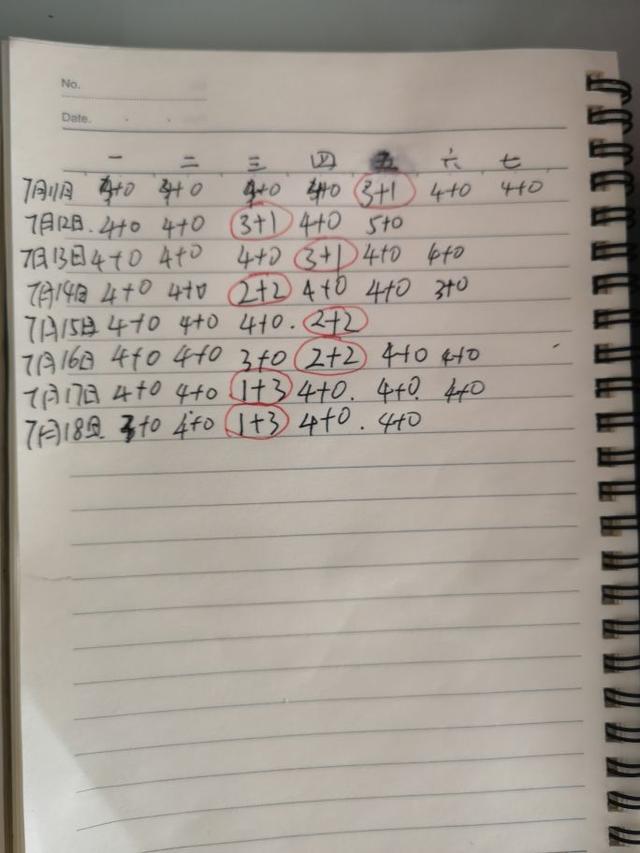 No.
Date.
一 二 三 四 五 六 七
7月11日 4+0 4+0 4+0 4+0 3+1 4+0 4+0
7月12日. 4+0 4+0 3+1 4+0 5+0
7月13日 4+0 4+0 4+0 3+1 4+0 4+0
7月14日 4+0 4+0 2+2 4+0 4+0 3+0
7月15日 4+0 4+0 4+0. 2+2
7月16日 4+0 4+0 3+0 2+2 4+0 4+0
7月17日 4+0 4+0 1+3 4+0. 4+0. 4+0
7月18日 3+0 4+0 1+3 4+0. 4+0